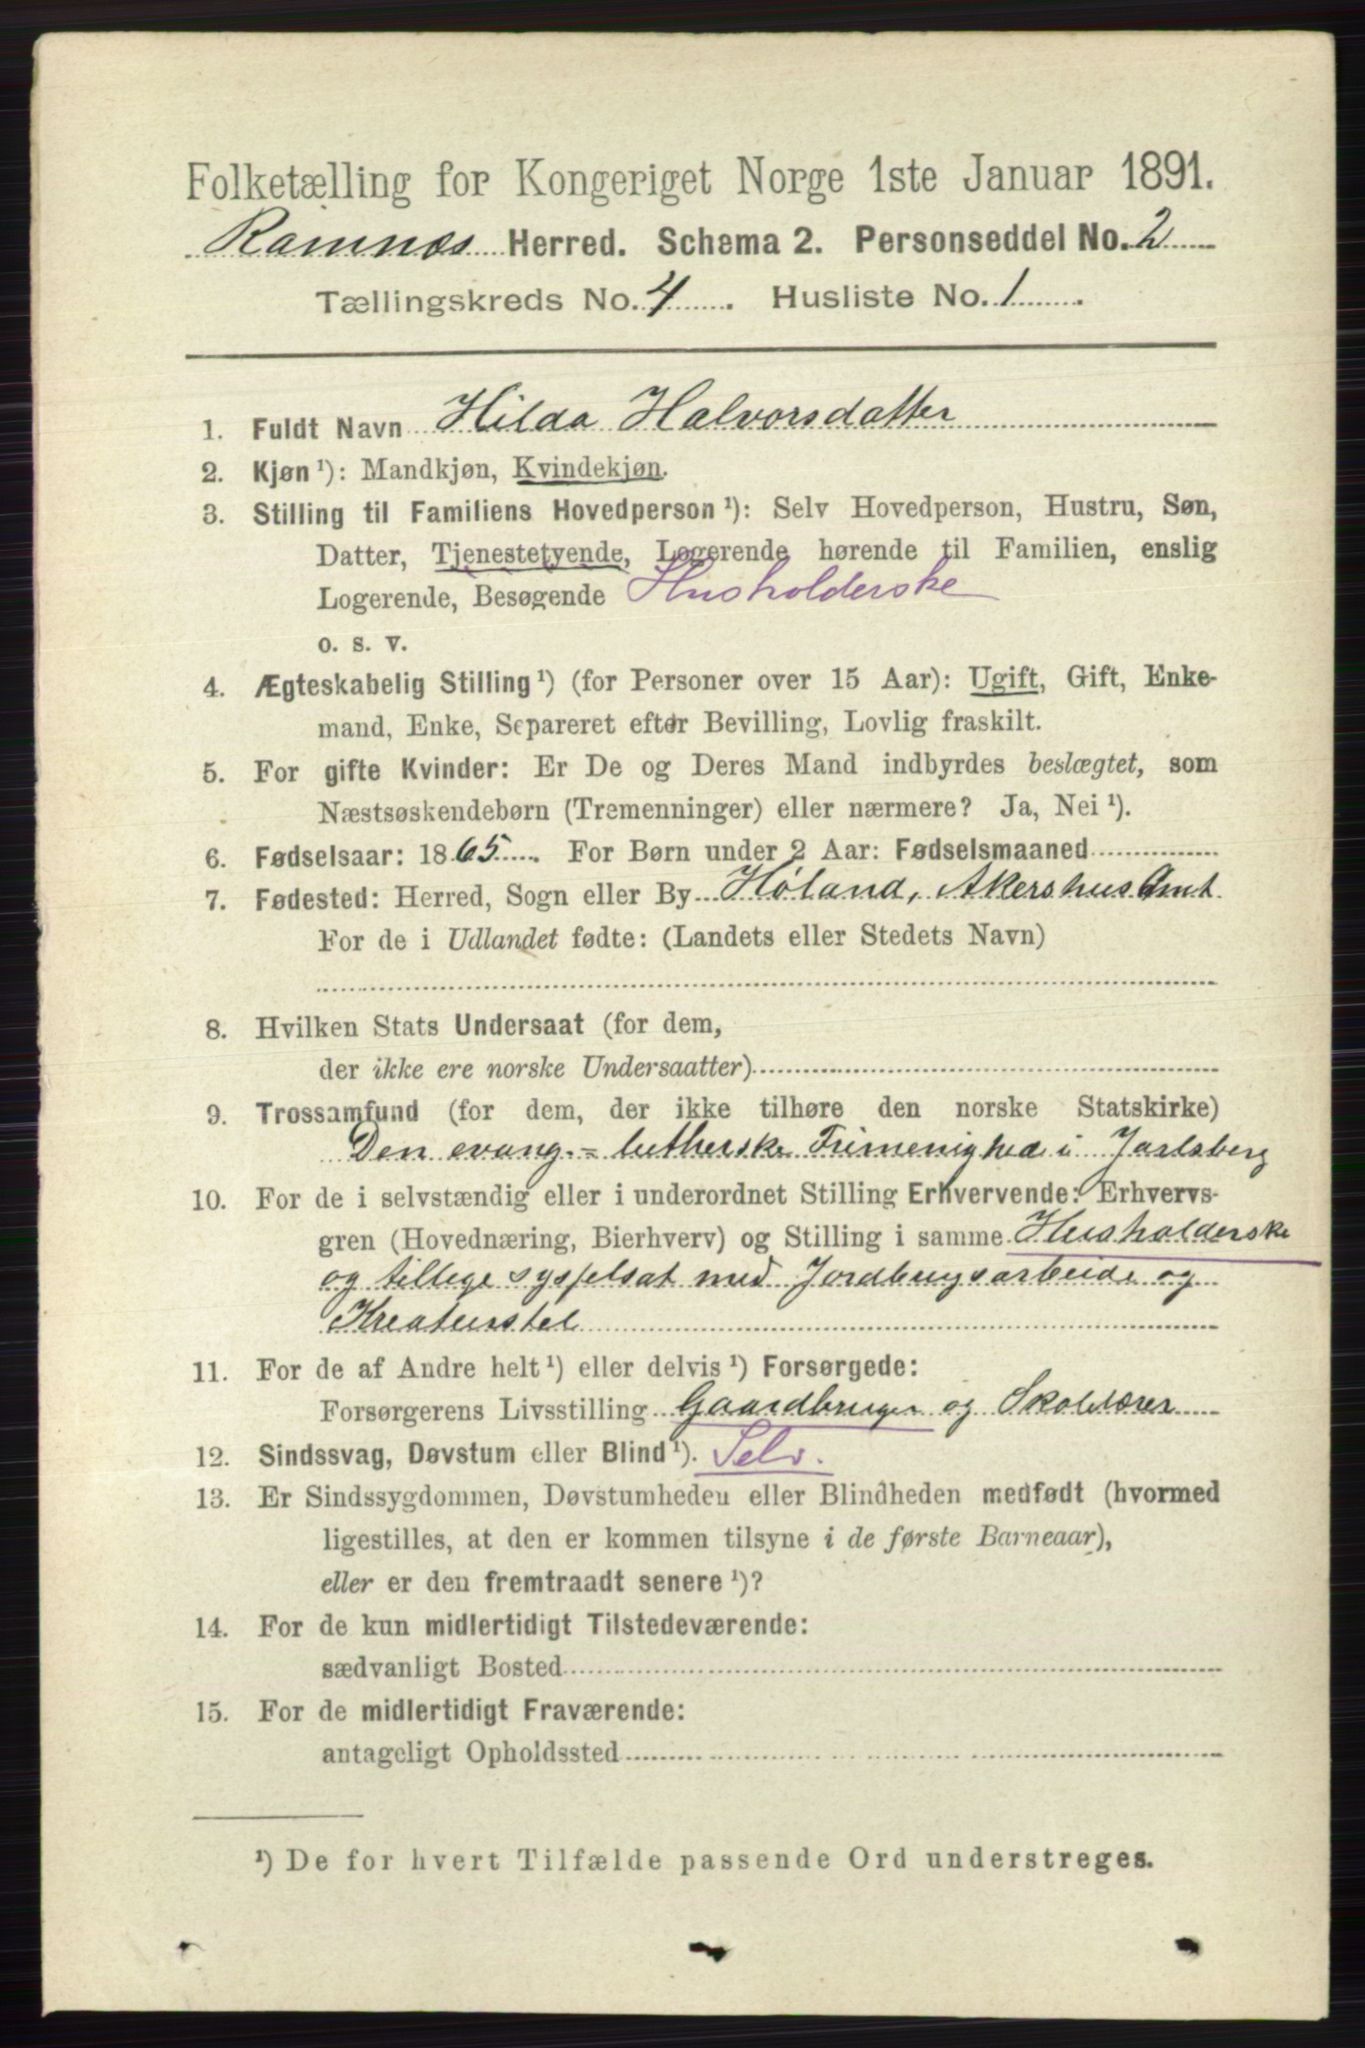 Folketælling for Kongeriget Norge 1ste Januar 1891.
Ramnæs Herred. Schema 2. Personseddel No. 2
Tællingskreds No. 4. Husliste No. 1.
1. Fuldt Navn Hilda Halvorsdatter
2. Kjøn ¹): Mandkjøn, Kvindekjøn.
3. Stilling til Familiens Hovedperson ¹): Selv Hovedperson, Hustru, Søn,
Datter, Tjenestetyende, Logerende hørende til Familien, enslig
Logerende, Besøgende Husholderske
o. s. v.
4. Ægteskabelig Stilling ¹) (for Personer over 15 Aar): Ugift, Gift, Enke-
mand, Enke, Separeret efter Bevilling, Lovlig fraskilt.
5. For gifte Kvinder: Er De og Deres Mand indbyrdes beslægtet, som
Næstsøskendebørn (Tremenninger) eller nærmere? Ja, Nei ¹).
6. Fødselsaar: 1865. For Børn under 2 Aar: Fødselsmaaned
7. Fødested: Herred, Sogn eller By Høland, Akershus Amt
For de i Udlandet fødte: (Landets eller Stedets Navn)
8. Hvilken Stats Undersaat (for dem,
der ikke ere norske Undersaatter)
9. Trossamfund (for dem, der ikke tilhøre den norske Statskirke)
Den evang.= lutherske Frimenighed i Jarlsberg
10. For de i selvstændig eller i underordnet Stilling Erhvervende: Erhvervs-
gren (Hovednæring, Bierhverv) og Stilling i samme Husholderske
og tillige sysselsat med Jordbrugsarbeide og
Kreaturstel
11. For de af Andre helt ¹) eller delvis ¹) Forsørgede:
Forsørgerens Livsstilling Gaardbruger og Skolelærer
12. Sindssvag, Døvstum eller Blind ¹). Selv.
13. Er Sindssygdommen, Døvstumheden eller Blindheden medfødt (hvormed
ligestilles, at den er kommen tilsyne i de første Barneaar),
eller er den fremtraadt senere ¹)?
14. For de kun midlertidigt Tilstedeværende:
sædvanligt Bosted
15. For de midlertidigt Fraværende:
antageligt Opholdssted
¹) De for hvert Tilfælde passende Ord understreges.